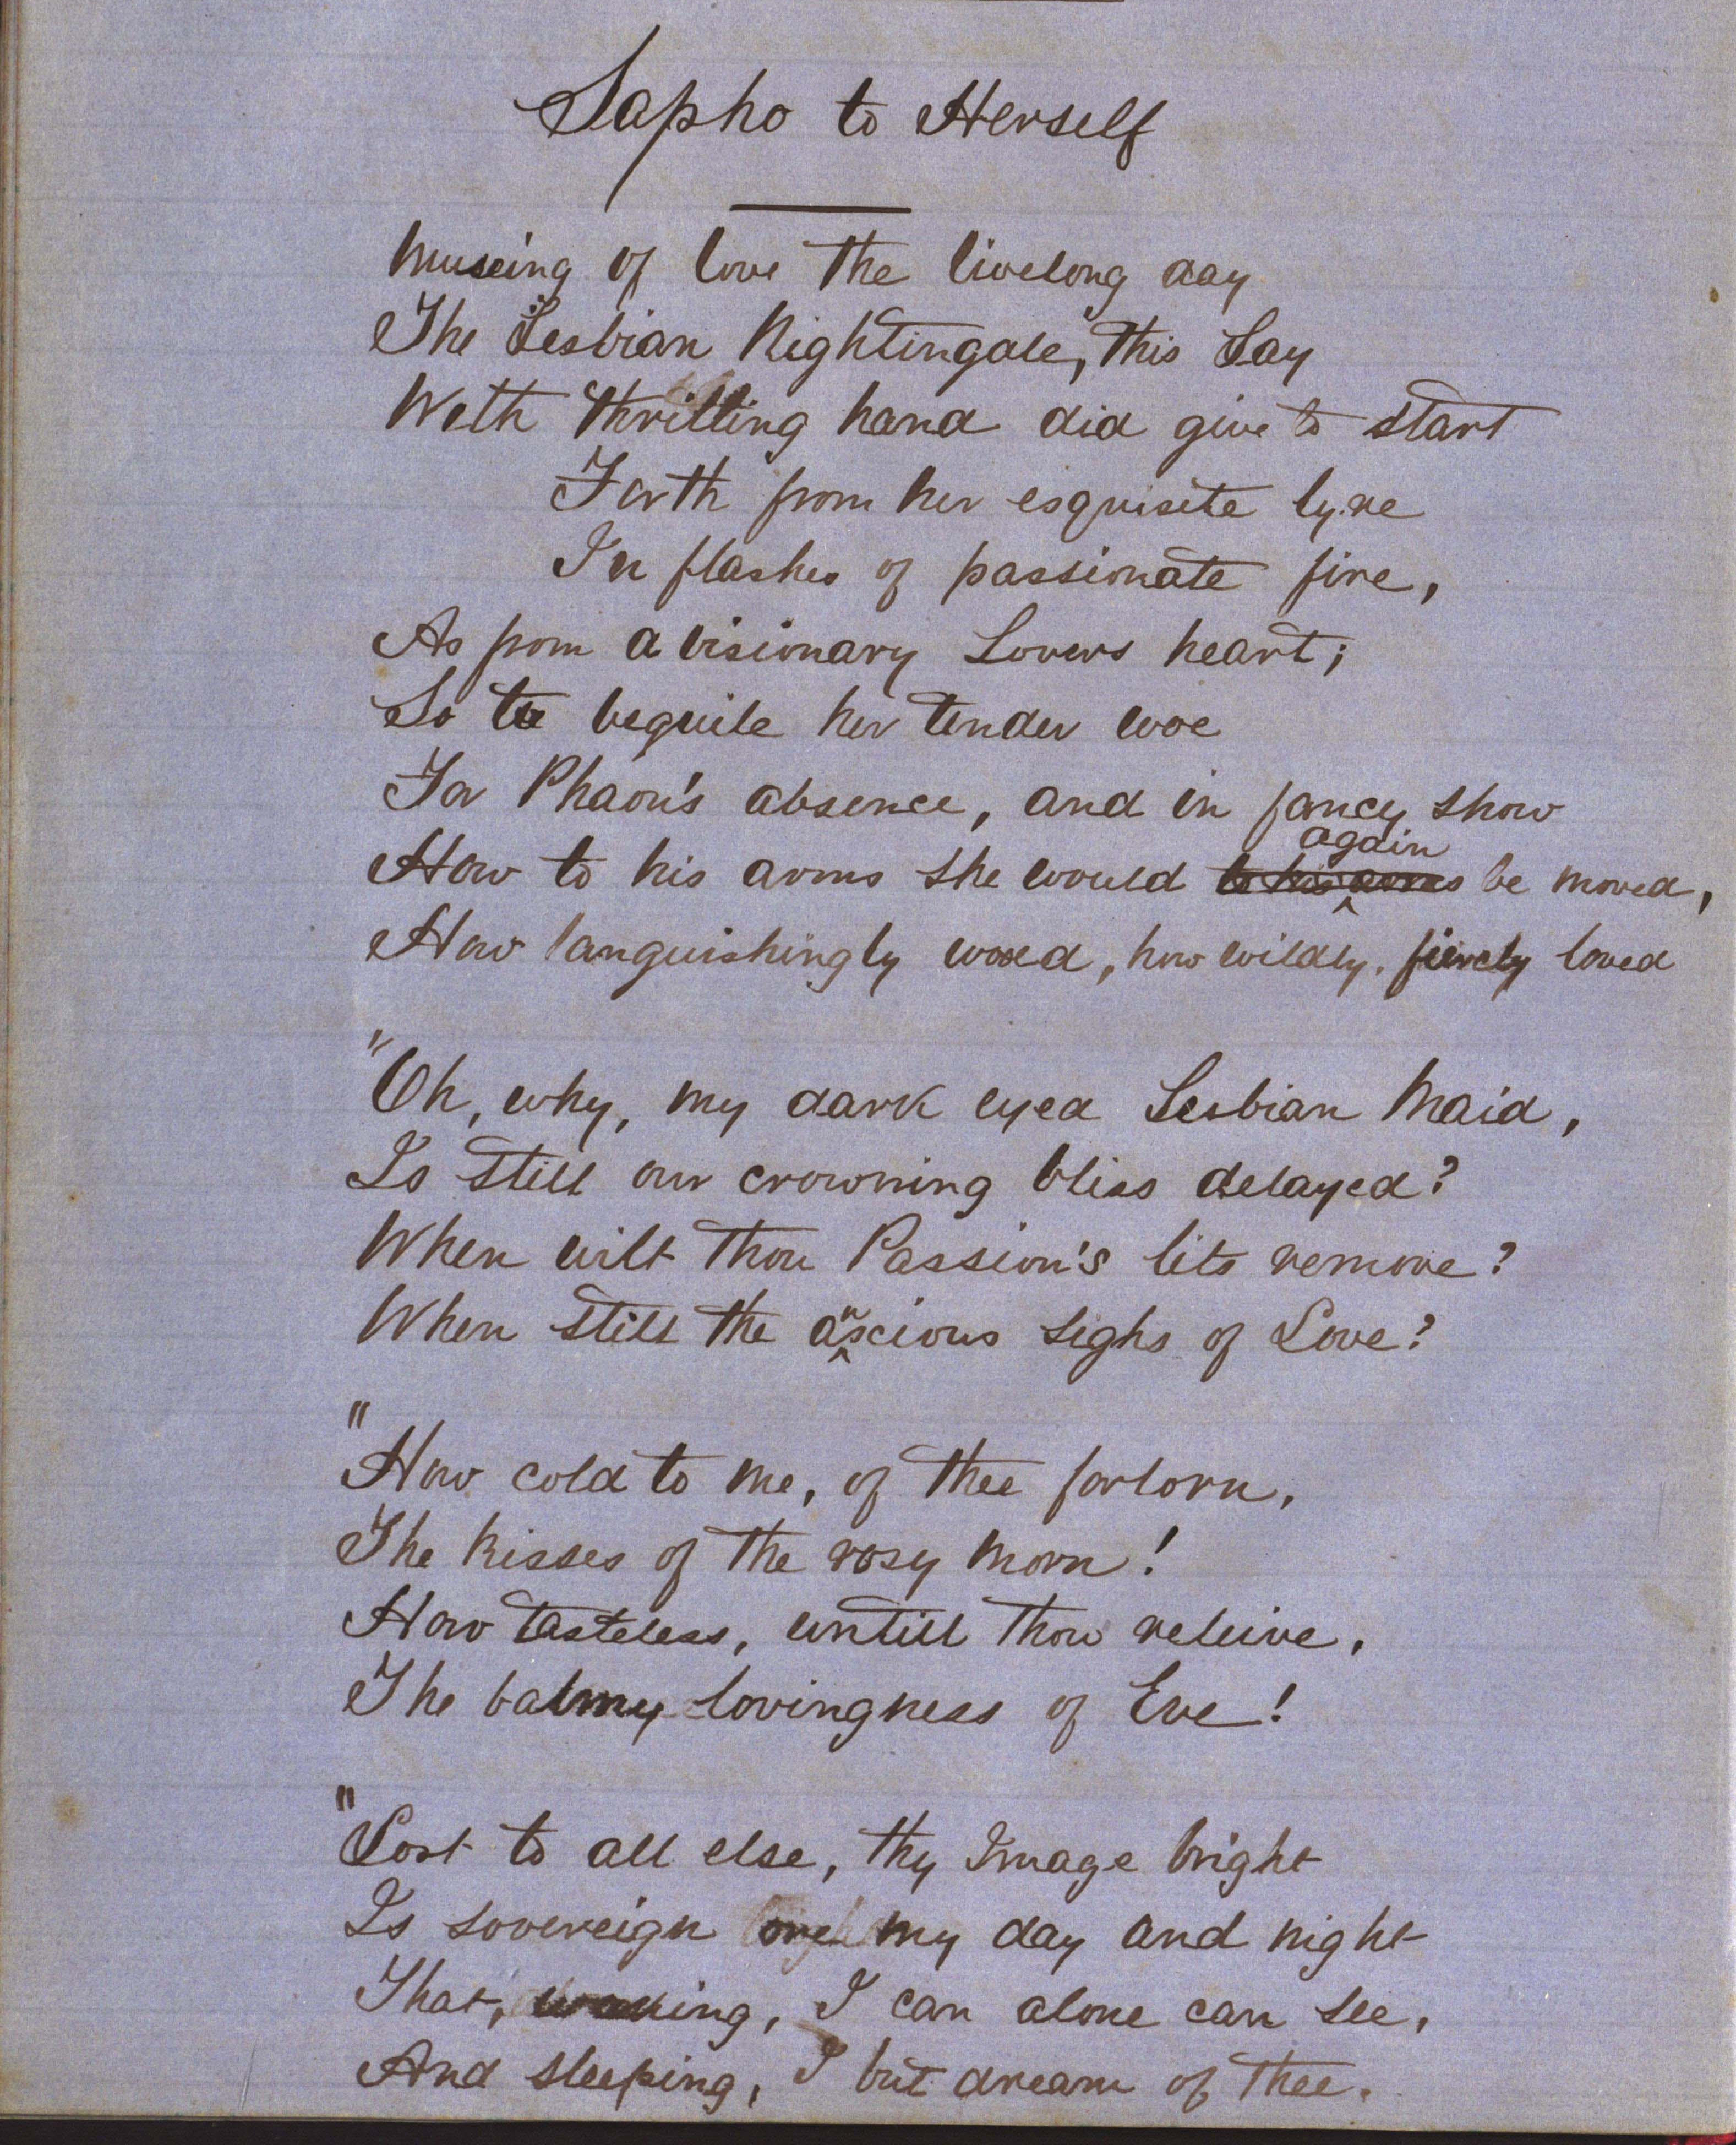 Sapho to Herself
Museing of love the livelong day
The Lesbian Nightingale, this Lay
With thrilling hand did give to start
Forth from her esquisite lyre
In flashes of passionate fire,
As from a visionary Lovers heart;
So to beguile her tender woe
For Phaon's absence, and in fancy show
again
How to his arms she would to his arms be moved,
How languishingly wooed, how wildly, fiercly loved
"Oh, why, my dark eyed Lesbian Maid,
Is still our crowning bliss delayed?
When wilt thou Passion's lets remove?
When still the anxcious sighs of Love?
"How cold to me, of thee forlorn,
The kisses of the rosy morn!
How tasteless, untill thou releive,
The balmy lovingness of Eve!
"Lost to all else, thy Image bright
Is sovereign over my day and night
That, waking, I can alone can see,
And sleeping, I but dream of thee.